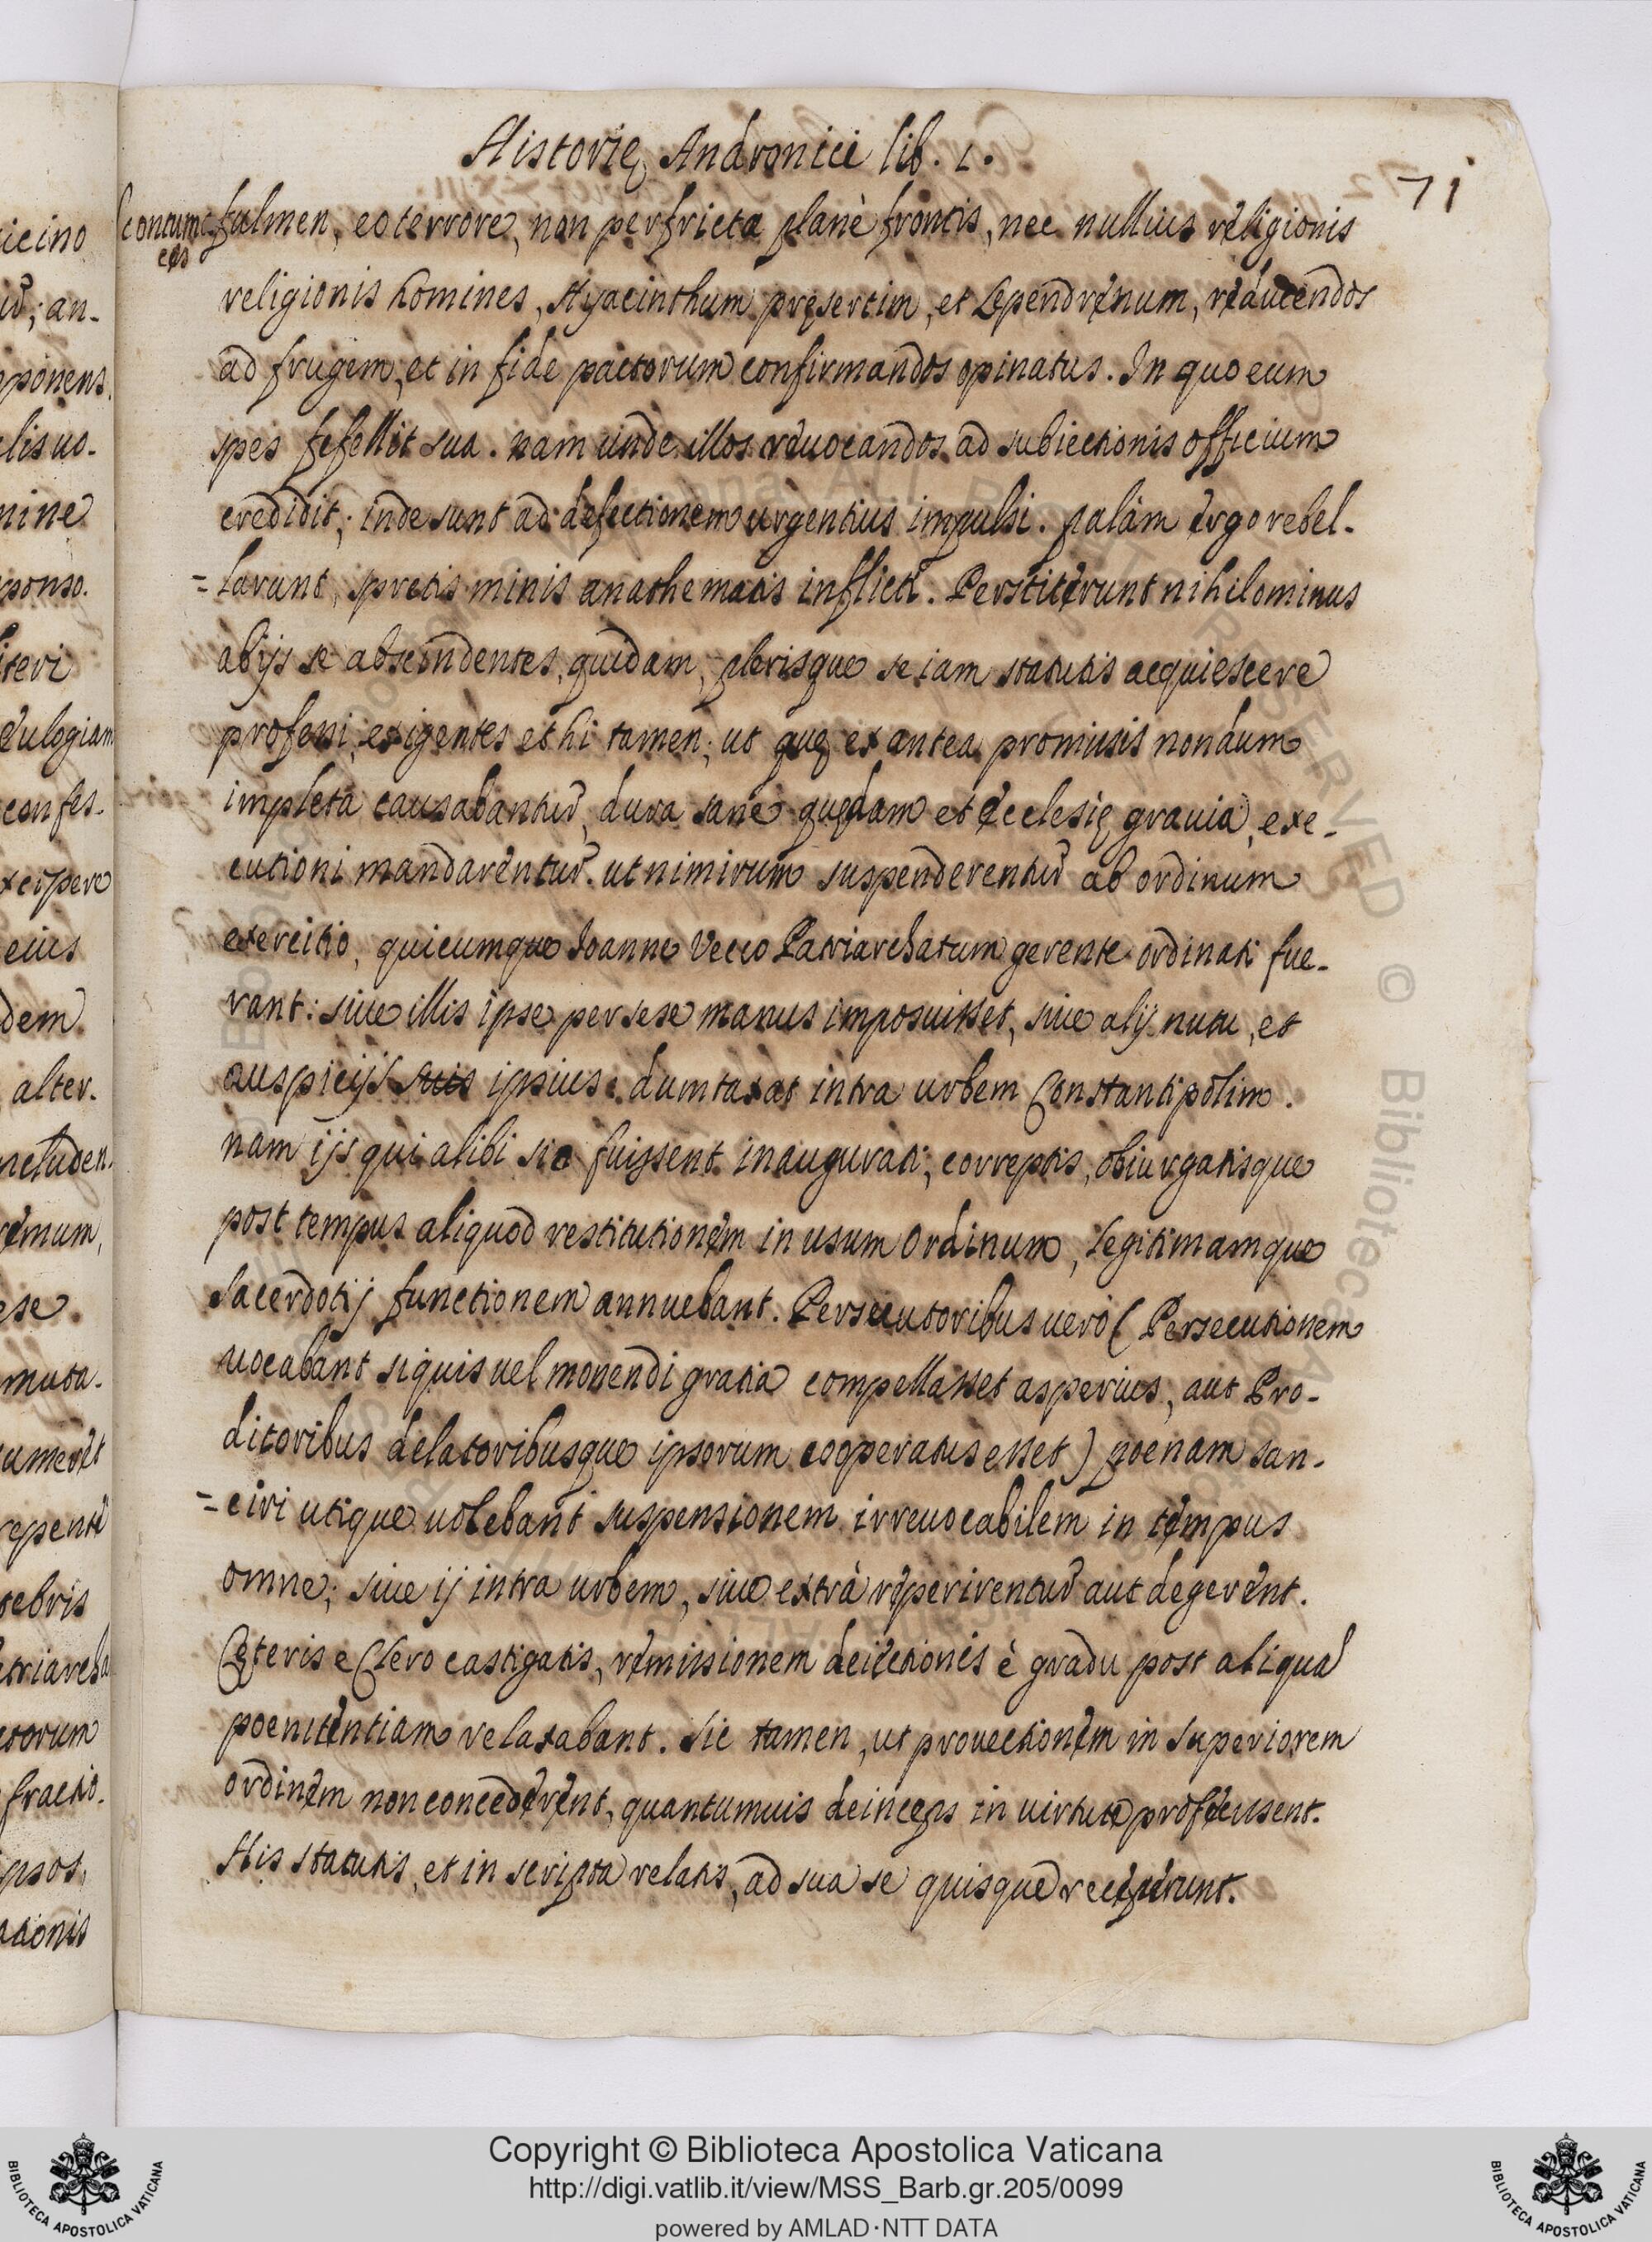 Historię Andronici lib. 1.
71
contumaces fulmen, eo terrore, non perfrictæ planè frontis, nec nullius religionis
religionis homines, Hyacinthum pręsertim, et Lependrenum, reducendos
ad frugem, et in fide pactorum confirmandos opinatus. In quo eum
spes fefellit sua. nam unde illos reuocandos ad subiectionis officium
credidit; inde sunt ad defectionem urgentius impulsi. palàm ergo rebel-
=larunt, spretis minis anathematis inflicti. Perstiterunt nihilominus
ab ijs se abscindentes, quidam, plerisque se iam statutis acquiescere
professi, exigentes et hi tamen; ut quę ex antea promissis nondum
impleta causabantur, dura sanè quędam et Ecclesię grauia, exe-
cutioni mandarentur. ut nimirum suspenderentur ab ordinum
exercitio, quicumque Ioanne Vecco Patriarchatum gerente ordinati fue-
rant: siue illis ipse per sese manus imposuisset, siue alij nutu, et
auspicijs suis ipsius. dumtaxat intra urbem Constantipolim.
nam ijs qui alibi sic fuissent inaugurati; correptis, obiurgatisque
post tempus aliquod restitutionem in usum Ordinum, legitimamque
Sacerdotij functionem annuebant. Persecutoribus uerò (Persecutionem
uocabant siquis uel monendi gratia compellasset asperius, aut Pro-
ditoribus delatoribusque ipsorum cooperatus esset) poenam san-
=ciri utique uolebant suspensionem irreuocabilem in tempus
omne; siue ij intra urbem, siue extrà reperirentur aut degerent.
Cęteris e Clero castigatis, remissionem deiectionis è gradu post aliquā
poenitentiam relaxabant. Sic tamen, ut prouectionem in superiorem
ordinem non concederent, quantumuis deinceps in uirtute profecissent.
His statutis, et in scripta relatis, ad sua se quisque receperunt.
icino
ur; an-
pponens.
lis uo-
mine
ponso.
iteri
eulogiam
confes-
xcipere
eius
dem
alter-
ncluden-
remum,
ese
muta-
umeret
repente
tebris
atriarcha
ctorum
fractio-
ipsos,
ationis
Copyright © Biblioteca Apostolica Vaticana
http://digi.vatlib.it/view/MSS_Barb.gr.205/0099
powered by AMLAD·NTT DATA
BIBLIOTECA APOSTOLICA VATICANA
BIBLIOTECA APOSTOLICA VATICANA